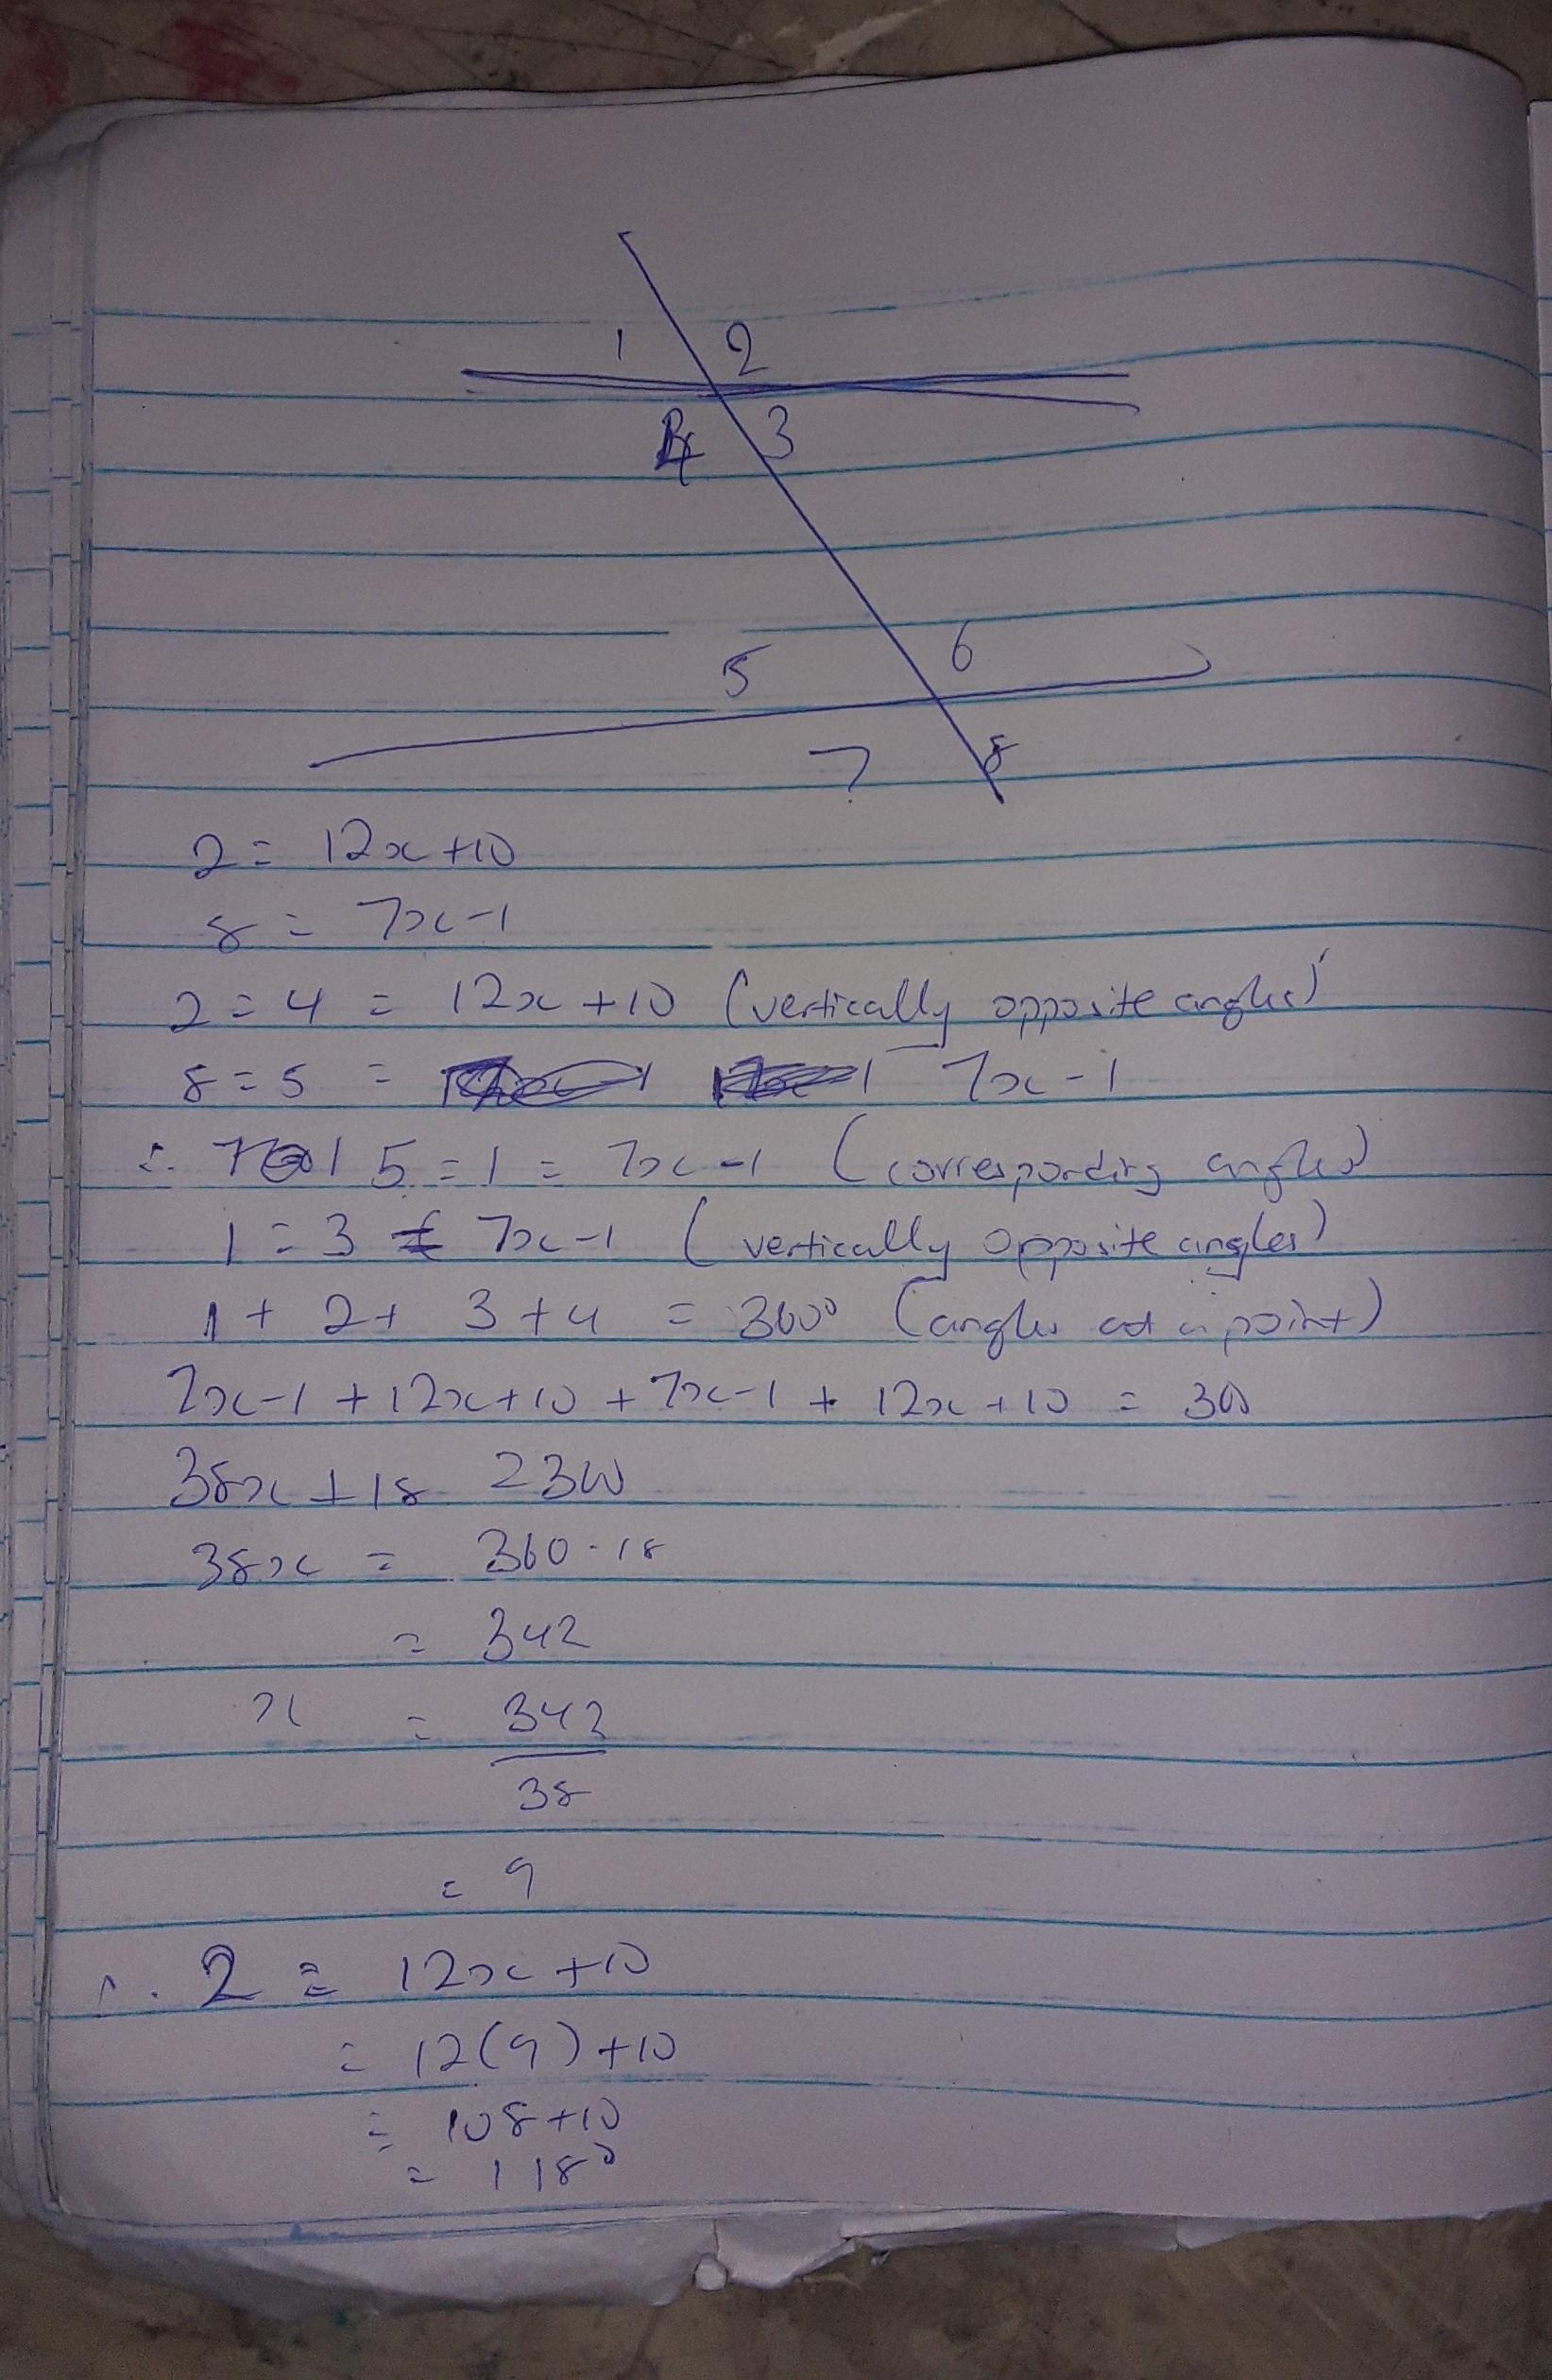 1 2
4 3
5 6
7 8
2 = 12x+10
8 = 7x-1
2 = 4 = 12x + 10 (vertically opposite angles)
8 = 5 = 7x - 1
∴ 5 = 1 = 7x - 1 (corresponding angles)
1 = 3 = 7x-1 (vertically opposite angles)
1 + 2 + 3 + 4 = 360° (angles at a point)
7x-1 + 12x+10 + 7x-1 + 12x+10 = 360
38x + 18 = 360
38x = 360-18
= 342
x = 342
38
= 9
∴ 2 = 12x+10
= 12(9)+10
= 108+10
= 118°